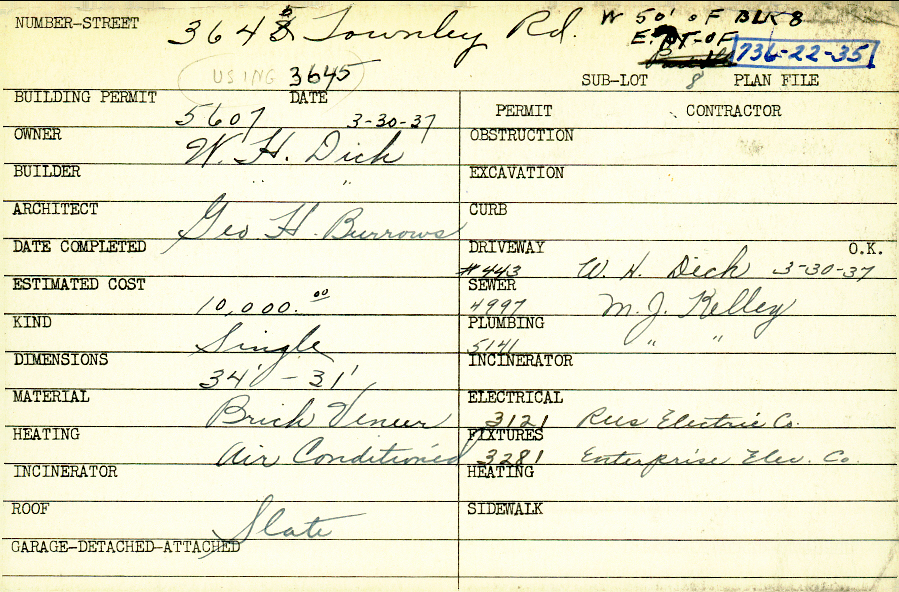 NUMBER-STREET 3645 Townley Rd. W 50' OF BLK 8
E. PT-OF
736-22-35
USING 3645 SUB-LOT 8 PLAN FILE
BUILDING PERMIT 5607 DATE 3-30-37
OWNER W. H. Dick
BUILDER " "
ARCHITECT Geo H. Burrows
DATE COMPLETED
ESTIMATED COST 10,000.00
KIND Single
DIMENSIONS 34' - 31'
MATERIAL Brick Veneer
HEATING Air Conditioned
INCINERATOR
ROOF Slate
GARAGE-DETACHED-ATTACHED
PERMIT CONTRACTOR
OBSTRUCTION
EXCAVATION
CURB
DRIVEWAY O.K.
#443 W. H. Dick 3-30-37
SEWER
4997 M. J. Kelley
PLUMBING
5141 " "
INCINERATOR
ELECTRICAL
3121 Rees Electric Co.
FIXTURES
3281 Enterprise Elec. Co.
HEATING
SIDEWALK